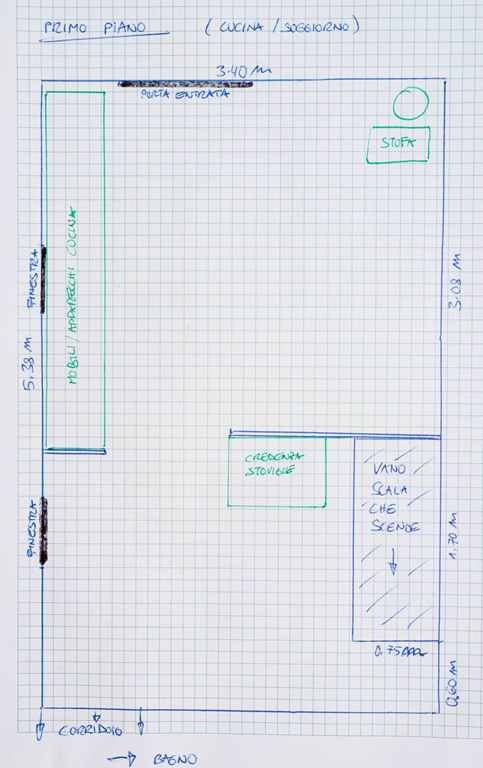 PRIMO PIANO (CUCINA/SOGGIORNO)
3.40 m
PORTA ENTRATA
STUFA
MOBILI/APPARECCHI CUCINA
FINESTRA
3.08 m
5.38 m
CREDENZA
STOVIGLIE
VANO
SCALA
CHE
SCENDE
FINESTRA
1.70 m
0.75 m
0.60 m
CORRIDOIO
BAGNO